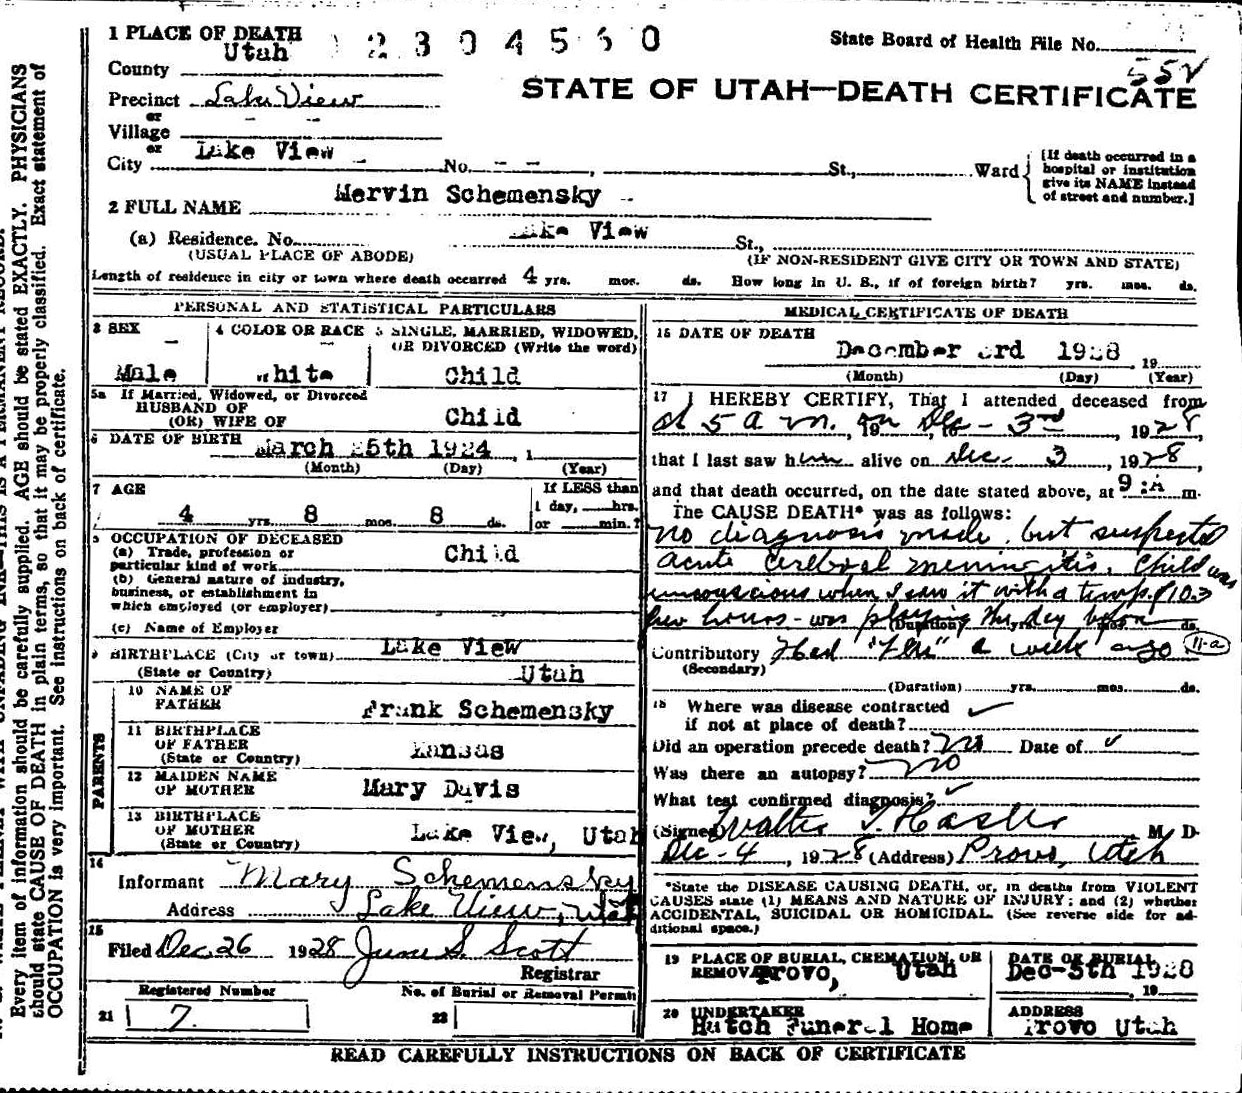 1 PLACE OF DEATH
12304560
State Board of Health File No.
552
STATE OF UTAH—DEATH CERTIFICATE
County Utah
Precinct Lake View
or
Village - -
or
City Lake View No. - - , St., Ward
[If death occurred in a hospital or institution give its NAME instead of street and number.]
2 FULL NAME Mervin Schemensky
(a) Residence. No. Lake View St.,
(USUAL PLACE OF ABODE) (IF NON-RESIDENT GIVE CITY OR TOWN AND STATE)
Length of residence in city or town where death occurred 4 yrs. mos. ds. How long in U. S., if of foreign birth? yrs. mos. ds.
PERSONAL AND STATISTICAL PARTICULARS
3 SEX
Male
4 COLOR OR RACE
White
5 SINGLE, MARRIED, WIDOWED, OR DIVORCED (Write the word)
Child
5a If Married, Widowed, or Divorced
HUSBAND OF
(OR) WIFE OF
Child
6 DATE OF BIRTH March 25th 1924, 1
(Month) (Day) (Year)
7 AGE
4 yrs. 8 mos. 8 ds.
If LESS than
1 day, hrs.
or min.?
OCCUPATION OF DECEASED
(a) Trade, profession or
particular kind of work Child
(b) General nature of industry,
business, or establishment in
which employed (or employer)
(c) Name of Employer
9 BIRTHPLACE (City or town) Lake View
(State or Country) Utah
PARENTS
10 NAME OF
FATHER Frank Schemensky
11 BIRTHPLACE
OF FATHER
(State or Country) Kansas
12 MAIDEN NAME
OF MOTHER Mary Davis
13 BIRTHPLACE
OF MOTHER
(State or Country) Lake View, Utah
14
Informant Mary Schemensky
Address Lake View, Utah
15
Filed Dec. 26 1928 June S. Scott
Registrar
Registered Number
21 7
No. of Burial or Removal Permit
22
MEDICAL CERTIFICATE OF DEATH
16 DATE OF DEATH
December 3rd 1928 , 19
(Month) (Day) (Year)
17 I HEREBY CERTIFY, That I attended deceased from
at 5 a m. on Dec - 3rd, 1928,
that I last saw him alive on Dec. 3, 1928,
and that death occurred, on the date stated above, at 9:A m.
The CAUSE DEATH* was as follows:
no diagnosis made, but suspected
acute cerebral meningitis. Child was
unconscious when I saw it with a temp. of 103
few hours - was playing the day before
(Duration) yrs. ds.
Contributory Had "Flu" a week ago 11-a
(Secondary)
(Duration) yrs. mos. ds.
18 Where was disease contracted
if not at place of death?
Did an operation precede death? no Date of
Was there an autopsy? no
What test confirmed diagnosis?
(Signed) Walter T. Hasler M D.
Dec - 4, 1928 (Address) Provo, Utah
*State the DISEASE CAUSING DEATH, or, in deaths from VIOLENT
CAUSES state (1) MEANS AND NATURE OF INJURY; and (2) whether
ACCIDENTAL, SUICIDAL OR HOMICIDAL. (See reverse side for additional space.)
19 PLACE OF BURIAL, CREMATION, OR
REMOVAL Provo, Utah
DATE OF BURIAL
Dec-5th 1928
, 19
20 UNDERTAKER
Hatch Funeral Home
ADDRESS
Provo Utah
READ CAREFULLY INSTRUCTIONS ON BACK OF CERTIFICATE
Every item of information should be carefully supplied. AGE should be stated EXACTLY. PHYSICIANS
should state CAUSE OF DEATH in plain terms, so that it may be properly classified. Exact statement of
OCCUPATION is very important. See instructions on back of certificate.